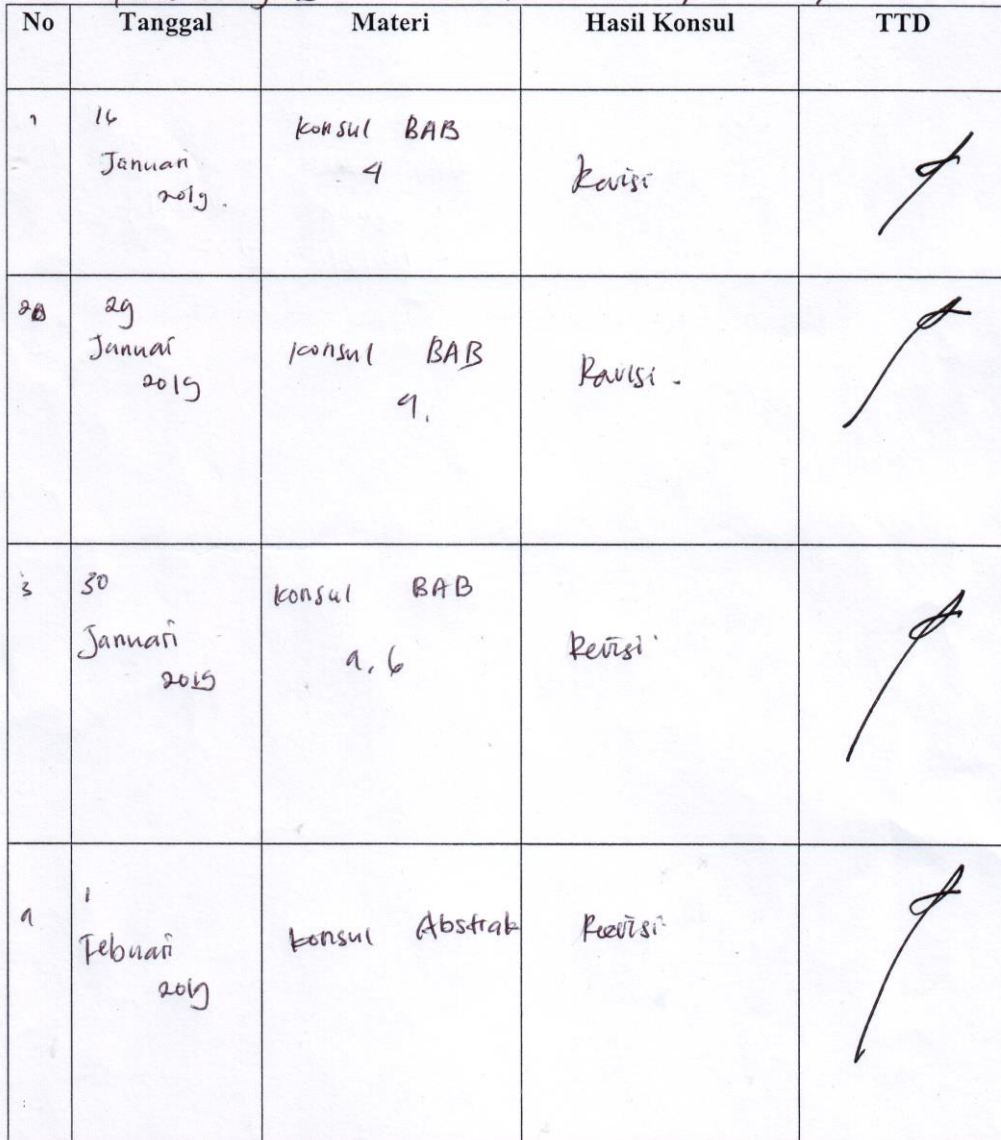 No Tanggal Materi Hasil Konsul TTD
1 16 Januari 2019. konsul BAB 4 Revisi
2 29 Januai 2019 konsul BAB 4. Revisi.
3 30 Januari 2019 konsul BAB 4, 6 Revisi
4 1 Febuari 2019 konsul Abstrak Revisi